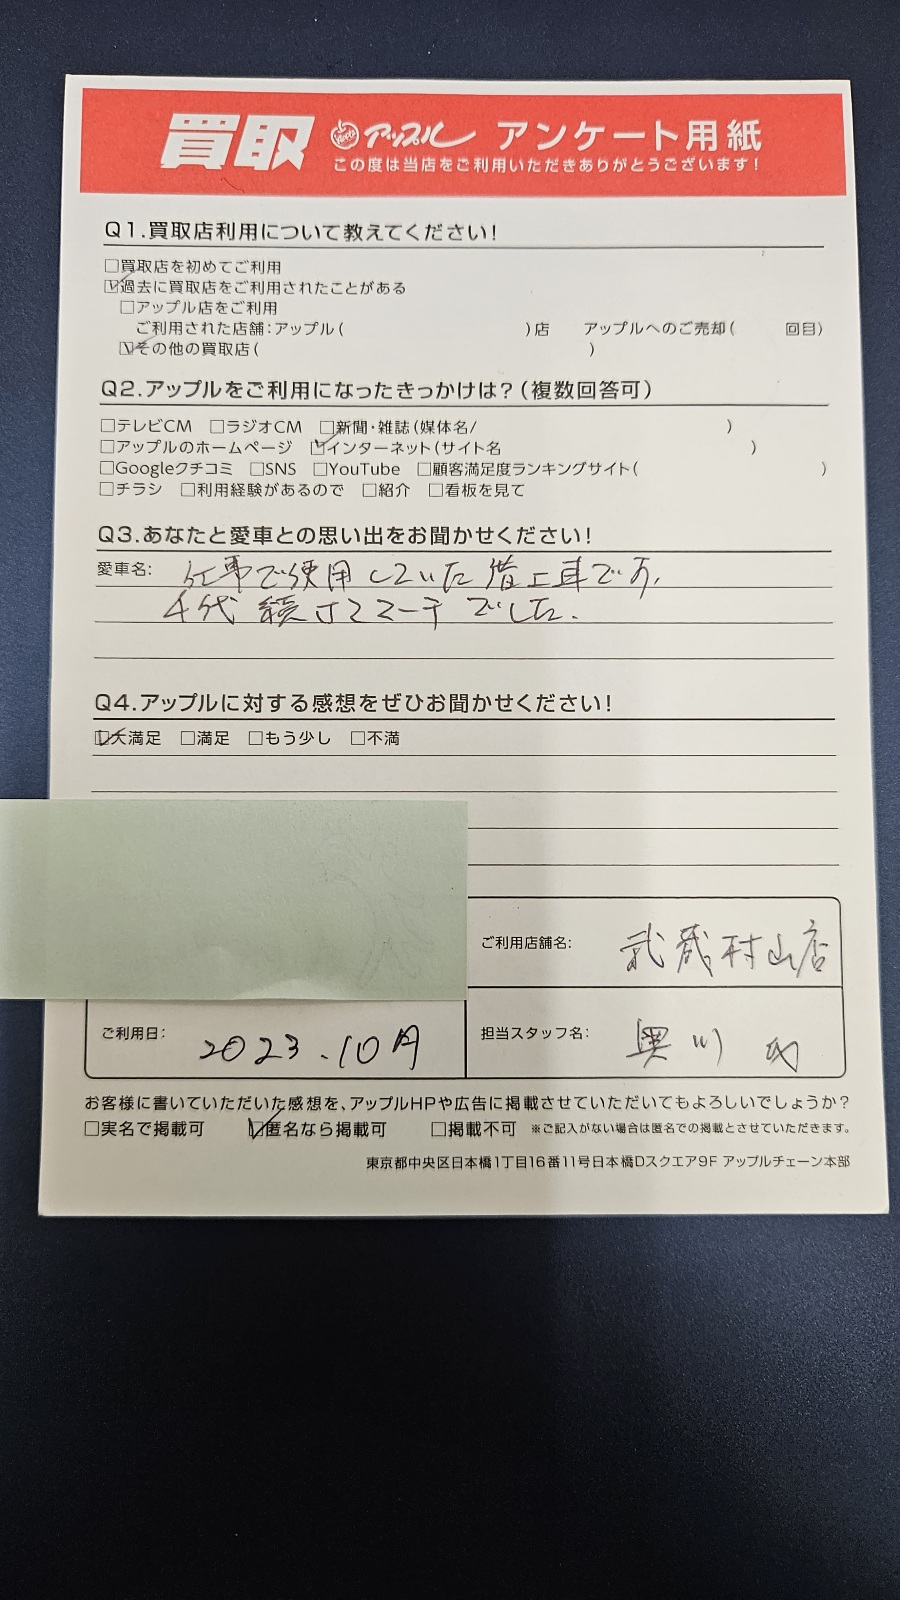 買取 アップル アンケート用紙
この度は当店をご利用いただきありがとうございます!
Q1.買取店利用について教えてください!
□買取店を初めてご利用
☑過去に買取店をご利用されたことがある
□アップル店をご利用
ご利用された店舗:アップル( )店 アップルへのご売却( 回目)
☑その他の買取店( )
Q2.アップルをご利用になったきっかけは?(複数回答可)
□テレビCM □ラジオCM □新聞・雑誌(媒体名/ )
□アップルのホームページ ☑インターネット(サイト名 )
□Googleクチコミ □SNS □YouTube □顧客満足度ランキングサイト( )
□チラシ □利用経験があるので □紹介 □看板を見て
Q3.あなたと愛車との思い出をお聞かせください!
愛車名: 仕事で使用していた借上車です。
4代続けてマーチでした.
Q4.アップルに対する感想をぜひお聞かせください!
☑大満足 □満足 □もう少し □不満
ご利用店舗名: 武蔵村山店
ご利用日: 2023.10月 担当スタッフ名: 川氏
お客様に書いていただいた感想を、アップルHPや広告に掲載させていただいてもよろしいでしょうか?
□実名で掲載可 ☑匿名なら掲載可 □掲載不可 ※ご記入がない場合は匿名での掲載とさせていただきます。
東京都中央区日本橋1丁目16番11号日本橋Dスクエア9F アップルチェーン本部